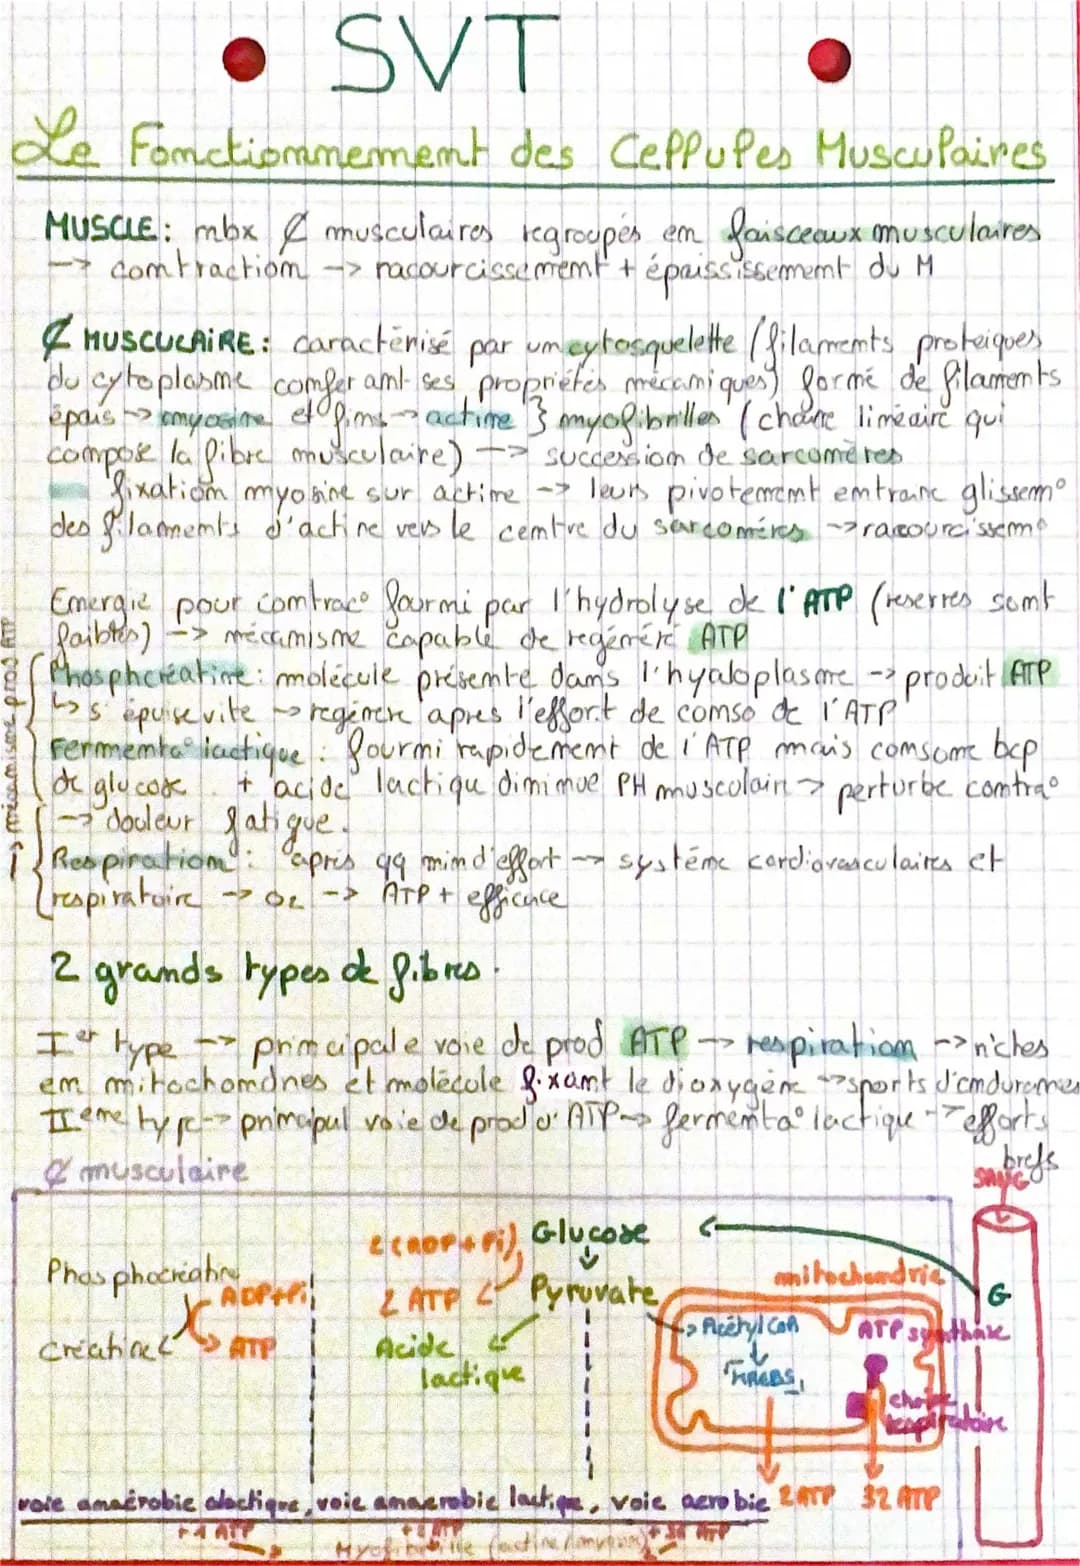 SVT
Le Fonctionnement des Cellules Musculaires
MUSCLE: nbx ₵ musculaires regroupés en faisceaux musculaires
-> contraction -> racourcissement + épaississement du M
₵ MUSCULAIRE: caractérisé par un cytosquelette (filaments proteiques
du cytoplasme conferant ses propriétés mécaniques) formé de filaments
épais -> myosine et fins -> actine } myofibrilles (chaîne linéaire qui
compose la fibre musculaire) -> succession de sarcomères
fixation myosine sur actine -> leurs pivotement entraine glissem°
des filaments d'actine vers le centre du sarcomères -> racourcissem°
Energie pour contrac° fourni par l'hydrolyse de l'ATP (reserves sont
faibles) -> mécanisme capable de regénéré ATP
Phosphcréatine: molécule présente dans l'hyaloplasme -> produit ATP
↳ s'épuise vite -> regénere apres l'effort de conso de l'ATP
Fermenta° lactique: fourni rapidement de l'ATP mais consome bcp
de glucose + acide lactique diminue PH musculair -> perturbe contra°
-> douleur fatigue.
Respiration: après qq min d'effort -> système cardiovasculaires et
respiratoire -> O2 -> ATP + efficace
-> mécanisme prod ATP
2 grands types de fibres.
Ier type -> principale voie de prod ATP -> respiration -> riches
en mitochondries et molécule fixant le dioxygène -> sports d'endurances
IIeme type -> principal voie de prod d'ATP -> fermenta° lactique -> efforts
brefs
₵ musculaire
SANG
2(ADP+Pi)
Glucose
Phosphocréatine
ADP+Pi
2 ATP
Pyruvate
mitochondrie
G
créatine
ATP
Acide
lactique
Acétyl CoA
ATP synthase
KREBS
chaîne
respiratoire
voie anaérobie alactique, voie anaerobie lactique, voie aerobie
2ATP
32 ATP
+1 ATP
+2 ATP
+36 ATP
Myofibrille (actine/myosine)